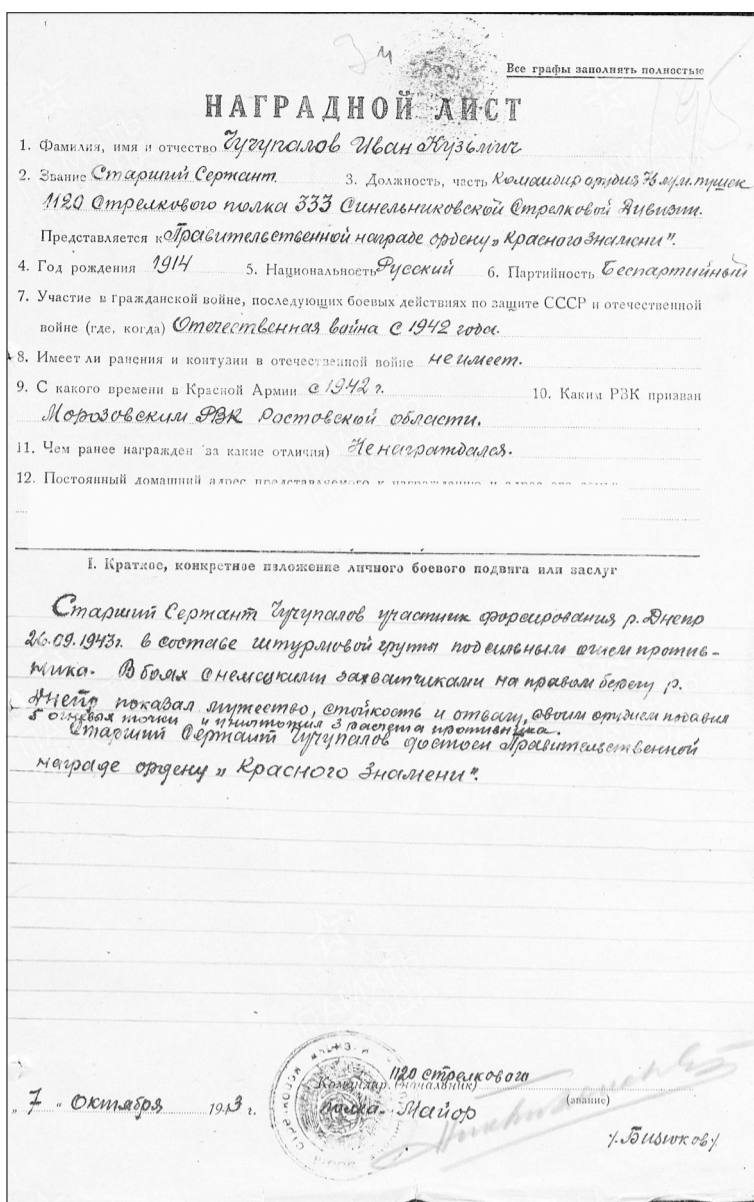 Все графы заполнять полностью
НАГРАДНОЙ ЛИСТ
1. Фамилия, имя и отчество Чучупалов Иван Кузьмич
2. Звание Старший Сержант. 3. Должность, часть Командир орудия 76 м.м. пушек
1120 Стрелкового полка 333 Синельниковской Стрелковой Дивизии.
Представляется к Правительственной награде ордену „Красного Знамени".
4. Год рождения 1914 5. Национальность Русский 6. Партийность Беспартийный
7. Участие в гражданской войне, последующих боевых действиях по защите СССР и отечественной
войне (где, когда) Отечественная война с 1942 года.
8. Имеет ли ранения и контузии в отечественной войне не имеет.
9. С какого времени в Красной Армии с 1942 г. 10. Каким РВК призван
Морозовским РВК Ростовской области.
11. Чем ранее награжден за какие отличия) Не награждался.
12. Постоянный домашний адрес представляемого к награждению и адрес его семьи
I. Краткое, конкретное изложение личного боевого подвига или заслуг
Старший Сержант Чучупалов участник форсирования р. Днепр
26.09.1943г. в составе штурмовой группы под сильным огнем против-
ника. В боях с немецкими захватчиками на правом берегу р.
Днепр показал мужество, стойкость и отвагу, своим орудием подавил
5 огневых точки и уничтожил 3 расчета противника.
Старший Сержант Чучупалов достоен Правительственной
награде ордену „Красного Знамени".
1120 стрелкового
Командир (начальник)
„ 7 " октября 1943 г. полка - Майор (звание)
/. Бизюков /.